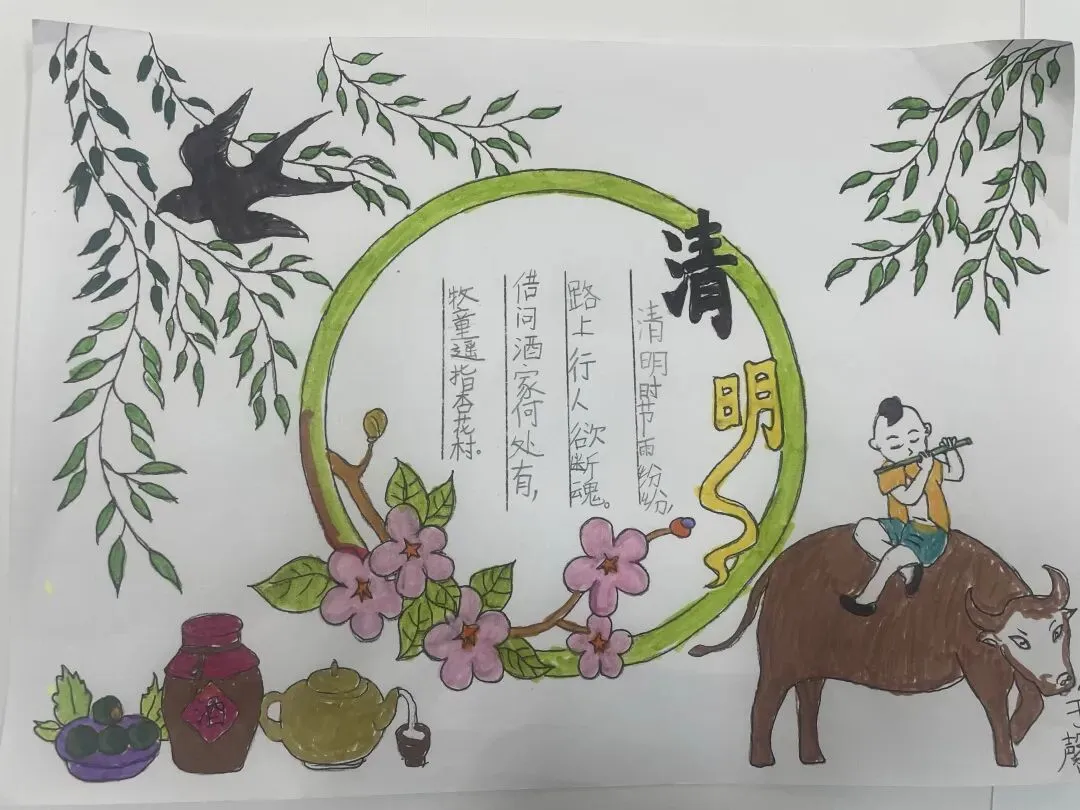 清明
清明时节雨纷纷,
路上行人欲断魂。
借问酒家何处有,
牧童遥指杏花村。
酒